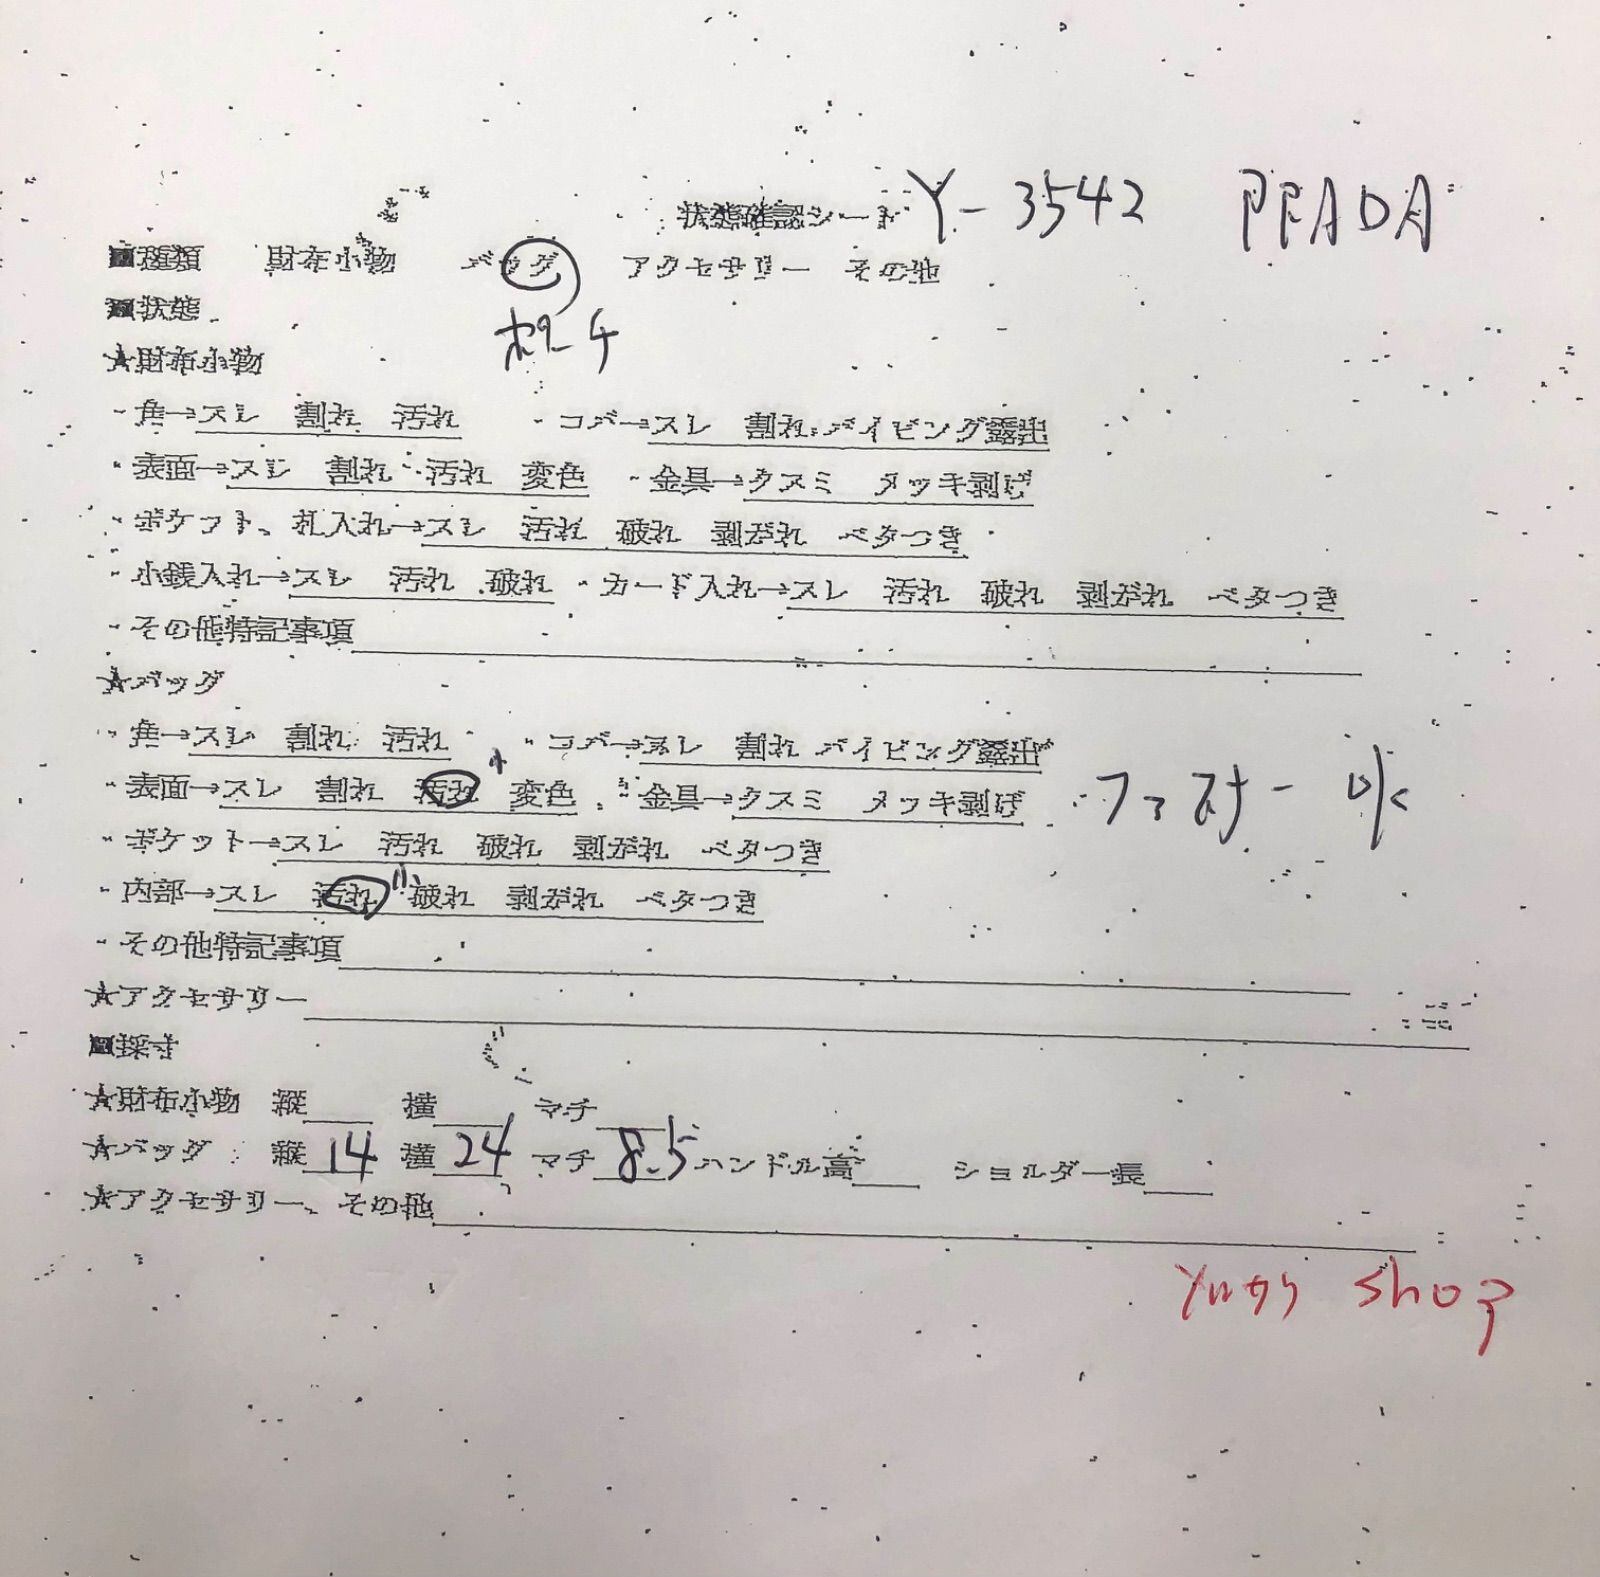 状態確認シート Y-3542 PRADA
■種類 財布小物 バッグ アクセサリー その他
■状態 ポーチ
★財布小物
・角→スレ 割れ 汚れ ・コバ→スレ 割れ パイピング露出
・表面→スレ 割れ 汚れ 変色 ・金具→クスミ メッキ剥げ
・ポケット、札入れ→スレ 汚れ 破れ 剥がれ ベタつき
・小銭入れ→スレ 汚れ 破れ ・カード入れ→スレ 汚れ 破れ 剥がれ ベタつき
・その他特記事項
★バッグ
・角→スレ 割れ 汚れ ・コバ→スレ 割れ パイピング露出
・表面→スレ 割れ 汚れ 小 変色 ・金具→クスミ メッキ剥げ
・ポケット→スレ 汚れ 破れ 剥がれ ベタつき
・内部→スレ 汚れ 小 破れ 剥がれ ベタつき
・その他特記事項
★アクセサリー
■採寸
★財布小物 縦 横 マチ
★バッグ 縦 14 横 24 マチ 8.5 ハンドル高 ショルダー長
★アクセサリー、その他
shop